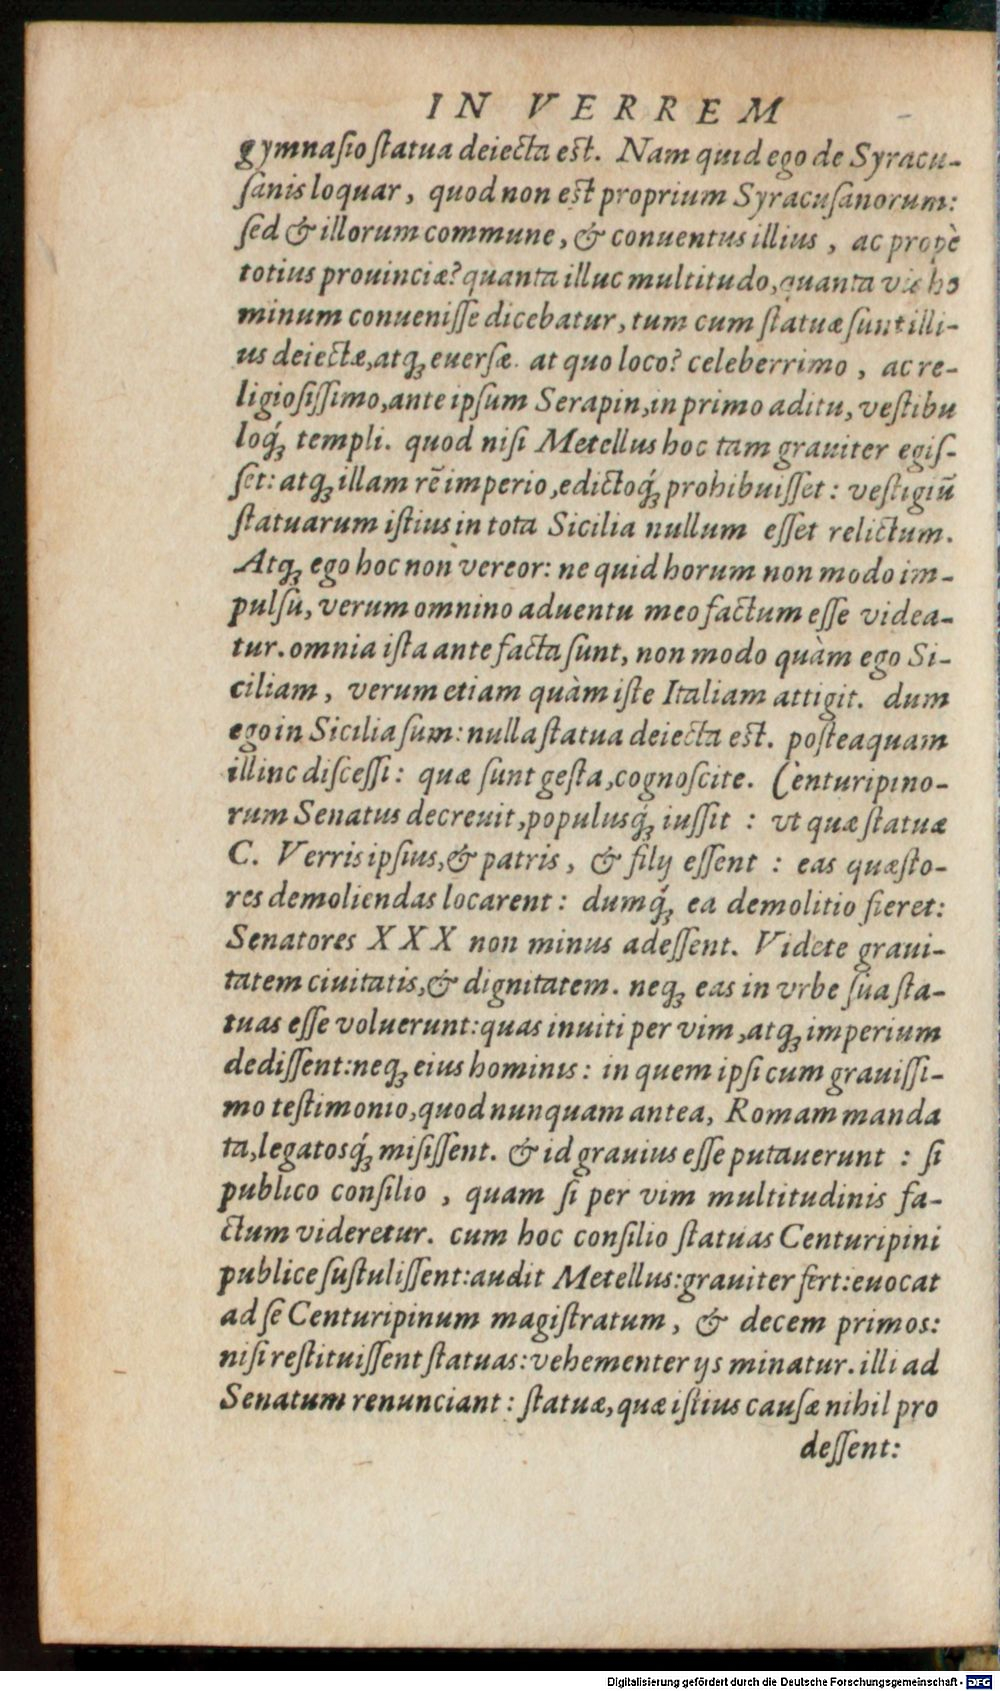 IN VERREM
gymnaſio ſtatua deiecta est. Nam quid ego de Syracu-
ſanis loquar, quod non est proprium Syracuſanorum:
ſed & illorum commune, & conuentus illius, ac propè
totius prouinciæ? quanta illuc multitudo, quanta vis ho
minum conueniſſe dicebatur, tum cum ſtatuæ ſunt illi-
us deiectæ, atq; euerſæ. at quo loco? celeberrimo, ac re-
ligioſiſſimo, ante ipſum Serapin, in primo aditu, veſtibu
loq́; templi. quod niſi Metellus hoc tam grauiter egiſ-
ſet: atq; illam rē imperio, edictoq́; prohibuiſſet: veſtigiū
ſtatuarum iſtius in tota Sicilia nullum eſſet relictum.
Atq; ego hoc non vereor: ne quid horum non modo im-
pulſu, verum omnino aduentu meo factum eſſe videa-
tur. omnia iſta ante facta ſunt, non modo quàm ego Si-
ciliam, verum etiam quàm iſte Italiam attigit. dum
ego in Sicilia ſum: nulla ſtatua deiecta est. poſteaquam
illinc diſceſſi: quæ ſunt geſta, cognoſcite. Centuripino-
rum Senatus decreuit, populusq́; iuſſit : vt quæ ſtatuæ
C. Verris ipſius, & patris, & filij eſſent : eas quæſto-
res demoliendas locarent: dumq́; ea demolitio fieret:
Senatores XXX non minus adeſſent. Videte graui-
tatem ciuitatis, & dignitatem. neq; eas in vrbe ſua ſta-
tuas eſſe voluerunt: quas inuiti per vim, atq; imperium
dediſſent: neq; eius hominis: in quem ipſi cum grauiſſi-
mo teſtimonio, quod nunquam antea, Romam manda
ta, legatosq́; miſiſſent. & id grauius eſſe putauerunt : ſi
publico conſilio, quam ſi per vim multitudinis fa-
ctum videretur. cum hoc conſilio ſtatuas Centuripini
publice ſuſtuliſſent: audit Metellus: grauiter fert: euocat
ad ſe Centuripinum magiſtratum, & decem primos:
niſi reſtituiſſent ſtatuas: vehementer ijs minatur. illi ad
Senatum renunciant: ſtatuæ, quæ iſtius cauſæ nihil pro
deſſent:
Digitalisierung gefördert durch die Deutsche Forschungsgemeinschaft - DFG